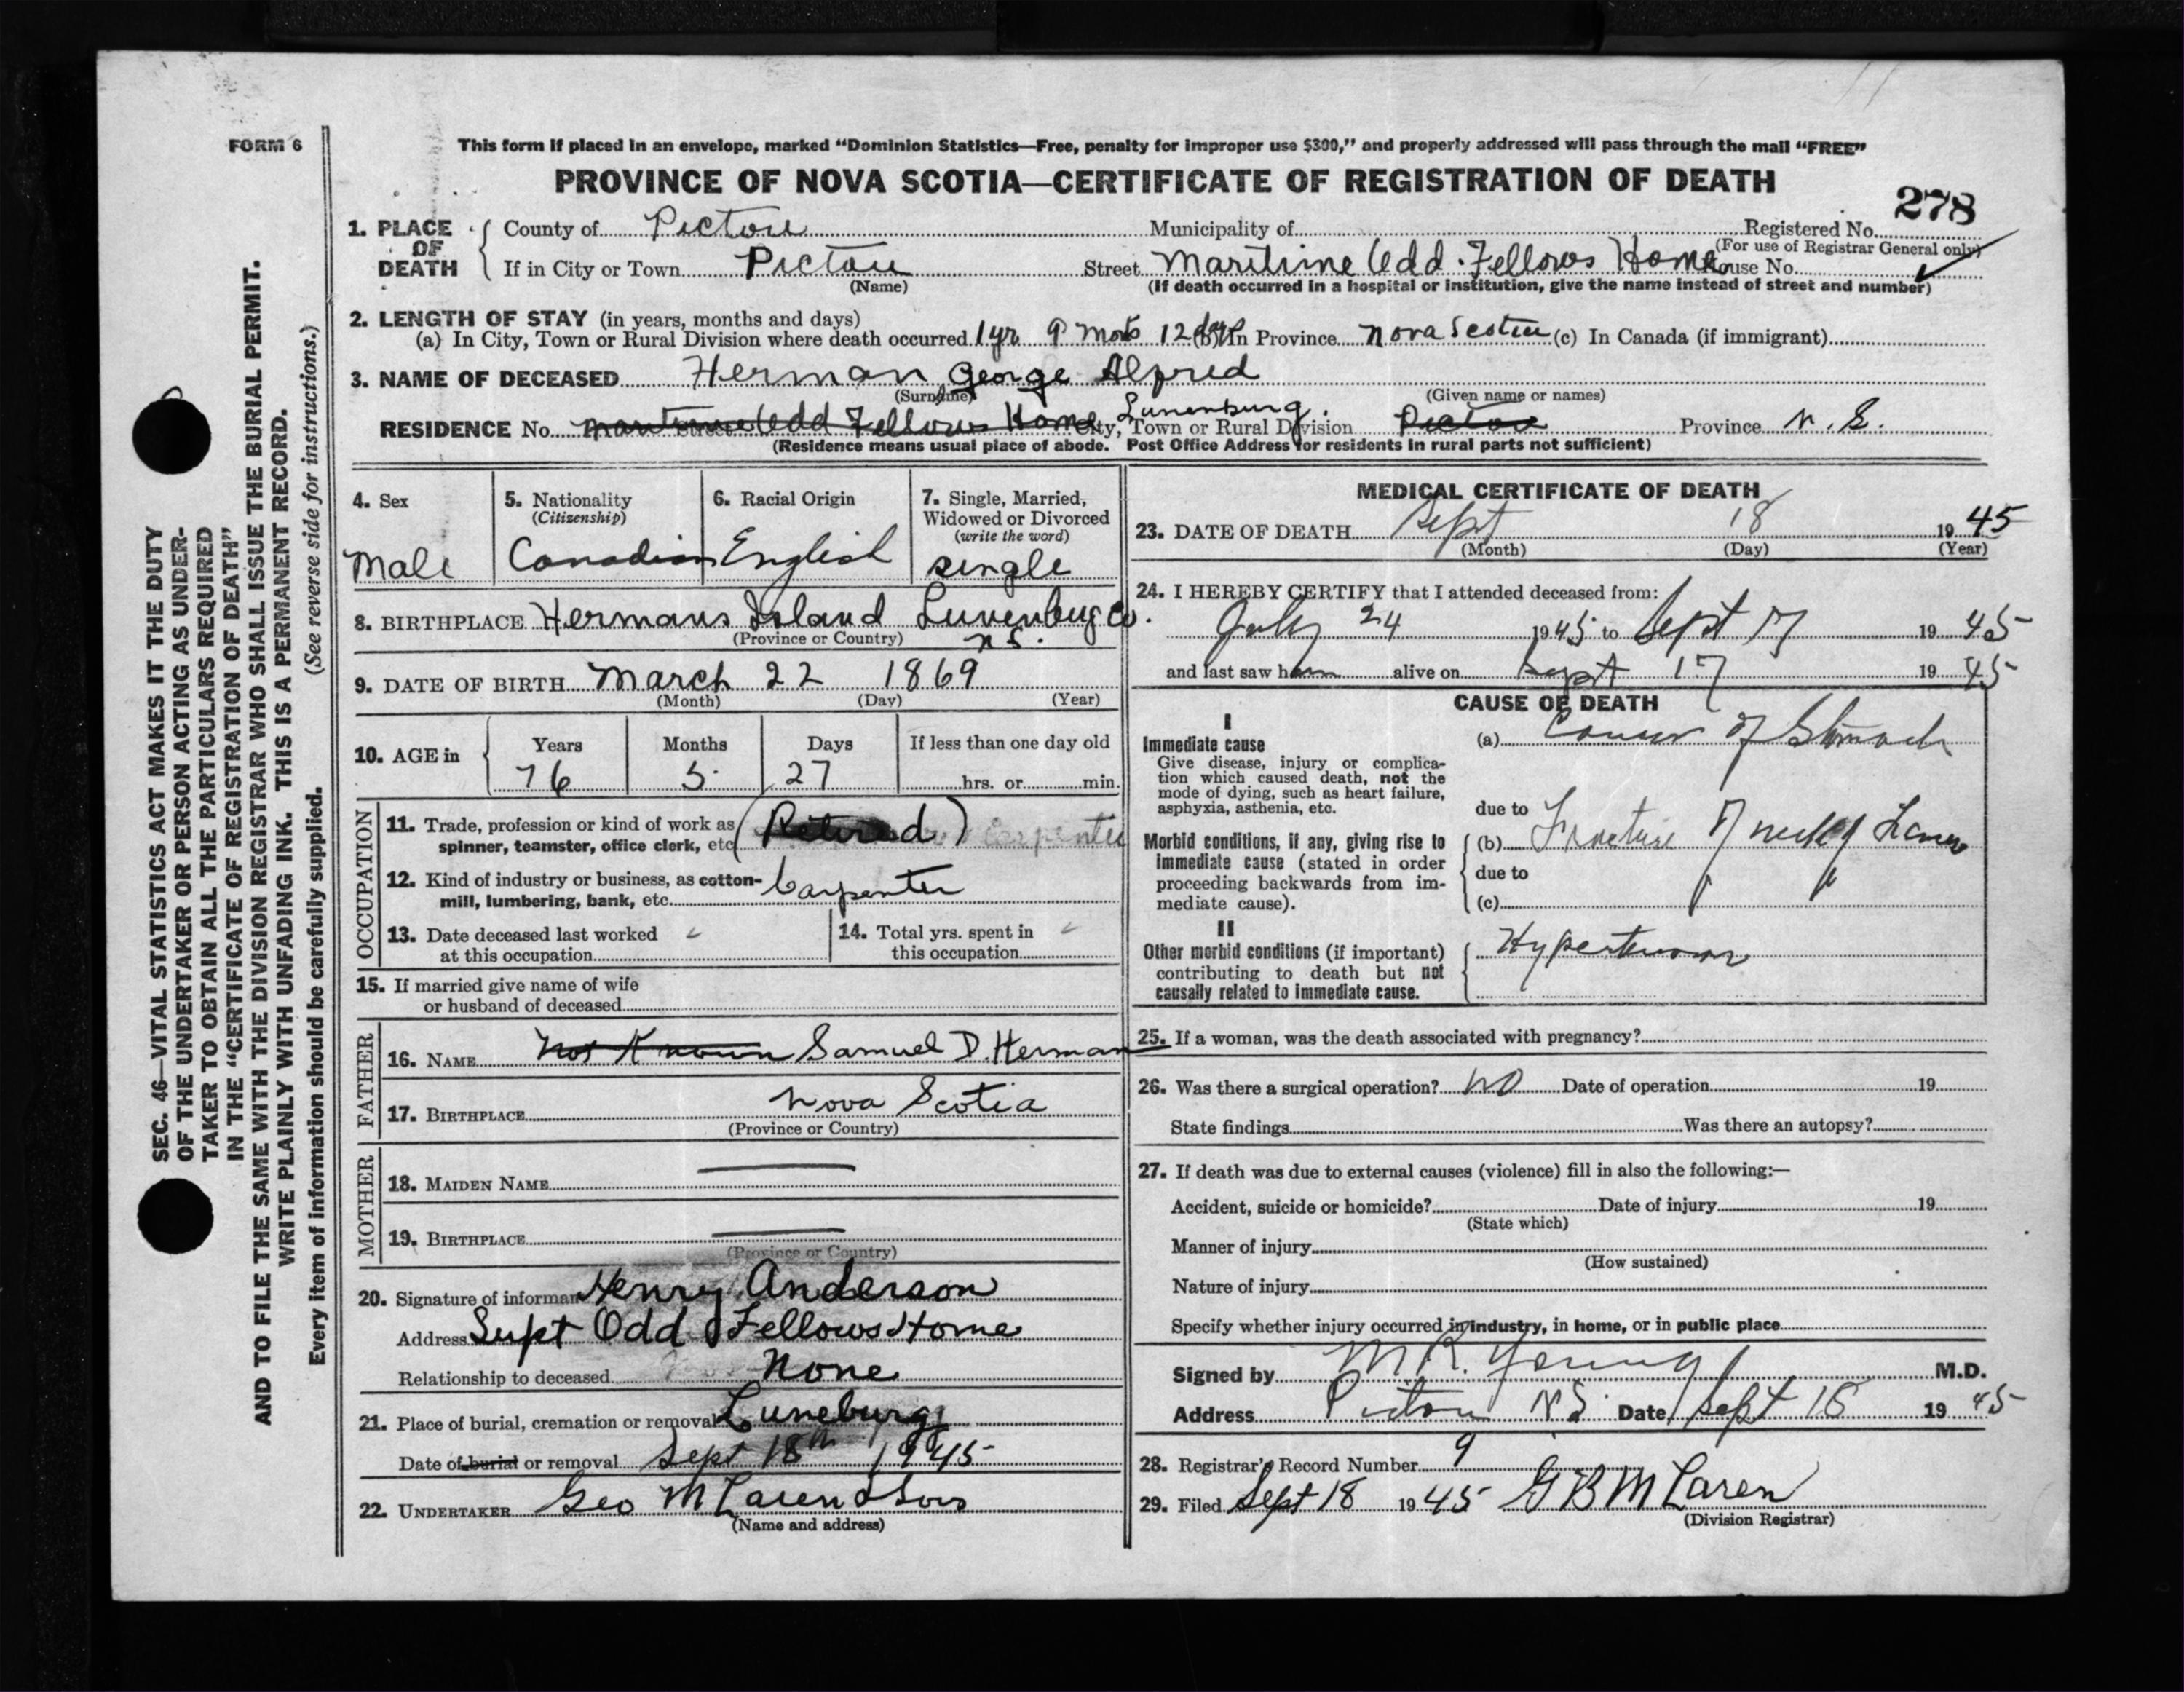 FORM 6
This form if placed in an envelope, marked “Dominion Statistics—Free, penalty for improper use $300,” and properly addressed will pass through the mail “FREE”
PROVINCE OF NOVA SCOTIA—CERTIFICATE OF REGISTRATION OF DEATH
278
1. PLACE OF DEATH
County of Pictou Municipality of Registered No.
(For use of Registrar General only)
If in City or Town Pictou Street Maritime Odd Fellows Home House No.
(Name) (If death occurred in a hospital or institution, give the name instead of street and number)
2. LENGTH OF STAY (in years, months and days)
(a) In City, Town or Rural Division where death occurred 1 yr 9 mos 12 days (b) In Province Nova Scotia (c) In Canada (if immigrant)
3. NAME OF DECEASED Herman George Alfred
(Surname) (Given name or names)
Lunenburg.
RESIDENCE No. Maritime Street Odd Fellows Home City, Town or Rural Division Pictou Province N.S.
(Residence means usual place of abode. Post Office Address for residents in rural parts not sufficient)
4. Sex
Male
5. Nationality
(Citizenship)
Canadian
6. Racial Origin
English
7. Single, Married,
Widowed or Divorced
(write the word)
single
8. BIRTHPLACE Hermans Island Lunenburg Co.
(Province or Country) N.S.
9. DATE OF BIRTH March 22 1869
(Month) (Day) (Year)
10. AGE in
Years Months Days If less than one day old
76 5 27 hrs. or min.
OCCUPATION
11. Trade, profession or kind of work as (Retired) Carpenter
spinner, teamster, office clerk, etc.
12. Kind of industry or business, as cotton- Carpenter
mill, lumbering, bank, etc.
13. Date deceased last worked
at this occupation
14. Total yrs. spent in
this occupation
15. If married give name of wife
or husband of deceased
FATHER
16. NAME Not Known Samuel D. Herman
17. BIRTHPLACE Nova Scotia
(Province or Country)
MOTHER
18. MAIDEN NAME
19. BIRTHPLACE
(Province or Country)
20. Signature of informant Henry Anderson
Address Supt Odd Fellows Home
Relationship to deceased None
21. Place of burial, cremation or removal Luneburg
Date of burial or removal Sept 18th 1945
22. UNDERTAKER Geo McLaren & Sons
(Name and address)
MEDICAL CERTIFICATE OF DEATH
23. DATE OF DEATH Sept 18 1945
(Month) (Day) (Year)
24. I HEREBY CERTIFY that I attended deceased from:
July 24 1945 to Sept 17 1945
and last saw him alive on Sept 17 1945
CAUSE OF DEATH
I
Immediate cause
Give disease, injury or complica-
tion which caused death, not the
mode of dying, such as heart failure,
asphyxia, asthenia, etc.
(a) Cancer of Stomach
due to
Morbid conditions, if any, giving rise to
immediate cause (stated in order
proceeding backwards from im-
mediate cause).
(b) Fracture of neck of Femur
due to
(c)
II
Other morbid conditions (if important)
contributing to death but not
causally related to immediate cause.
Hypertension
25. If a woman, was the death associated with pregnancy?
26. Was there a surgical operation? NO Date of operation 19
State findings Was there an autopsy?
27. If death was due to external causes (violence) fill in also the following:—
Accident, suicide or homicide? Date of injury 19
(State which)
Manner of injury
(How sustained)
Nature of injury
Specify whether injury occurred in industry, in home, or in public place
Signed by M R. Young M.D.
Address Pictou N S. Date Sept 18 1945
28. Registrar's Record Number 9
29. Filed Sept 18 1945 G B McLaren
(Division Registrar)
SEC. 46—VITAL STATISTICS ACT MAKES IT THE DUTY
OF THE UNDERTAKER OR PERSON ACTING AS UNDER-
TAKER TO OBTAIN ALL THE PARTICULARS REQUIRED
IN THE “CERTIFICATE OF REGISTRATION OF DEATH”
AND TO FILE THE SAME WITH THE DIVISION REGISTRAR WHO SHALL ISSUE THE BURIAL PERMIT.
WRITE PLAINLY WITH UNFADING INK. THIS IS A PERMANENT RECORD.
Every item of information should be carefully supplied. (See reverse side for instructions.)